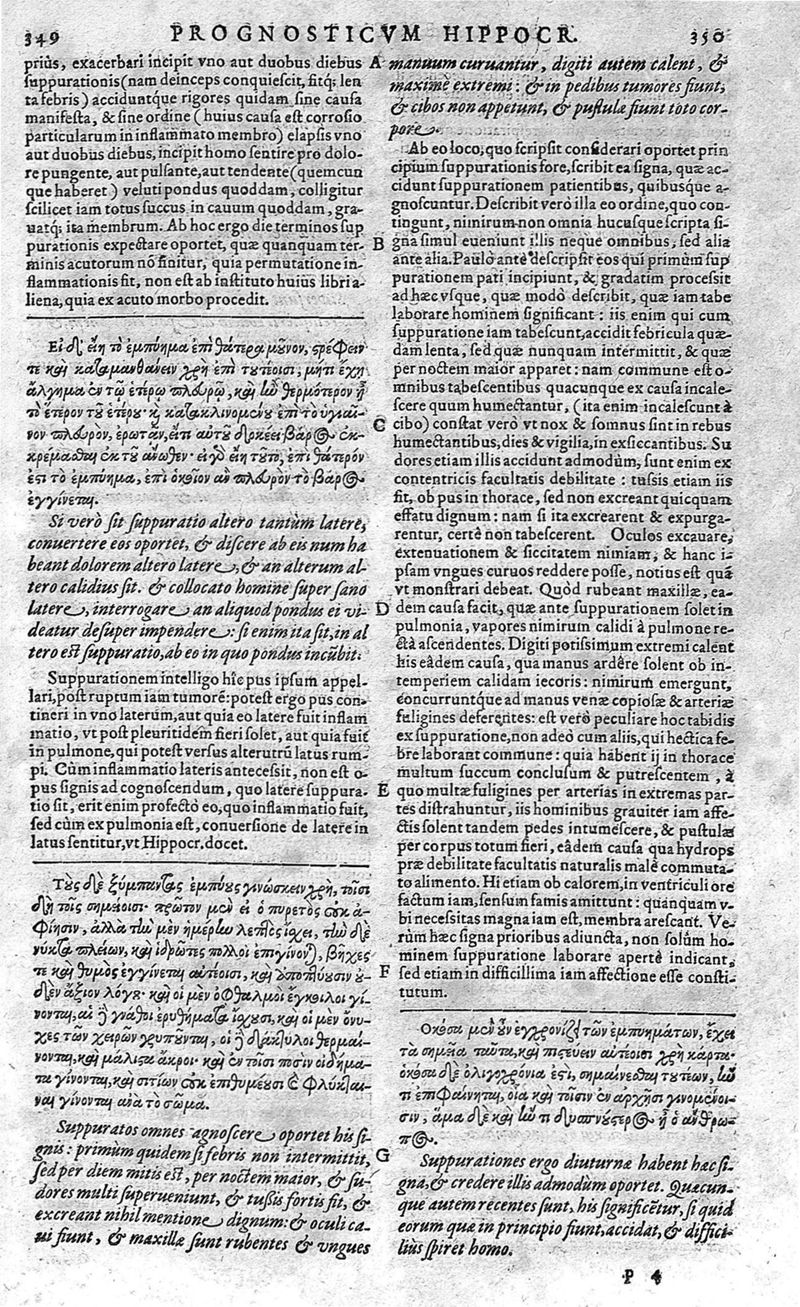 349 PROGNOSTICVM HIPPOCR. 350
prius, exacerbari incipit vno aut duobus diebus
suppurationis (nam deinceps conquiescit, fitq; len
ta febris) acciduntque rigores quidam sine causa
manifesta, & sine ordine (huius causa est corrosio
particularum in inflammato membro) elapsis vno
aut duobus diebus, incipit homo sentire pro dolo-
re pungente, aut pulsante, aut tendente (quemcun
que haberet) veluti pondus quoddam, colligitur
scilicet iam totus succus in cauum quoddam, gra-
uatq; ita membrum. Ab hoc ergo die terminos sup
purationis expectare oportet, quæ quanquam ter-
minis acutorum nō finitur, quia permutatione in-
flammationis fit, non est ab instituto huius libri a-
liena, quia ex acuto morbo procedit.
Εἰ δὲ εἴη τὸ ἐμπύημα ἐπὶ θάτερα μοῦνον, στρέφειν
τε καὶ καταμανθάνειν χρὴ ἐπὶ τουτέοισι, μήτι ἔχῃ
ἄλγημα ἐν τῷ ἑτέρῳ πλευρῷ, καὶ ἢν θερμότερον ᾖ
τὸ ἕτερον τοῦ ἑτέρου· κ̣ κατακλινομένου ἐπὶ τὸ ὑγιαῖ-
νον πλευρὸν, ἐρωτᾷν, εἴ τι αὐτοῦ δοκέει βάρος ἐκ-
κρέμασθαι ἐκ τοῦ ἄνωθεν· εἰ γὸ εἴη τοῦτο, ἐπὶ θάτερόν
ἐστι τὸ ἐμπύημα, ἐπὶ ὁκοῖον ἂν πλευρὸν τὸ βάρος
ἐγγίνεται.
Si verò sit suppuratio altero tantùm latere,
conuertere eos oportet, & discere ab eis num ha
beant dolorem altero latere, & an alterum al-
tero calidius sit. & collocato homine super sano
latere, interrogare an aliquod pondus ei vi-
deatur desuper impendere: si enim ita sit, in al
tero est suppuratio, ab eo in quo pondus incūbit.
Suppurationem intelligo hîc pus ipsum appel-
lari, post ruptum iam tumorē: potest ergo pus con-
tineri in vno laterum, aut quia eo latere fuit inflam
matio, vt post pleuritidem fieri solet, aut quia fuit
in pulmone, qui potest versus alterutrū latus rum-
pi. Cùm inflammatio lateris antecessit, non est o-
pus signis ad cognoscendum, quo latere suppura-
tio sit, erit enim profecto eo, quo inflammatio fuit,
sed cùm ex pulmonia est, conuersione de latere in
latus sentitur, vt Hippocr. docet.
Τοὺς δὲ ξύμπαντας ἐμπύους γινώσκειν χρὴ, τοῖσι
δὴ τοῖς σημείοισι· πρῶτον μὲν εἰ ὁ πυρετὸς οὐκ ἀ-
φίησιν, ἀλλὰ τὴν μὲν ἡμέρην λεπτὸς ἴσχει, τὴν δὲ
νύκτα πλείων, καὶ ἱδρῶτες πολλοὶ ἐπιγίνον), βῆχες
τε καὶ θυμὸς ἐγγίνεται αὐτέοισι, καὶ ἀποπτύουσιν οὐ-
δὲν ἄξιον λόγου· καὶ οἱ μὲν ὀφθαλμοὶ ἔγκοιλοι γί-
νονται, αἱ γνάθοι ἐρυθήματα ἴσχουσι, καὶ οἱ μὲν ὄνυ-
χες τῶν χειρῶν γρυποῦνται, οἱ ἢ δάκτυλοι θερμαί-
νονται, καὶ μάλιστα ἄκροι· καὶ ἐν τοῖσι ποσὶν οἰδήμα-
τα γίνονται, καὶ σιτίων οὐκ ἐπιθυμέουσι ϗ φλύκται-
ναι γίνονται ἀνὰ τὸ σῶμα.
Suppuratos omnes agnoscere oportet his si-
gnis: primùm quidem si febris non intermittit,
sed per diem mitis est, per noctem maior, & su-
dores multi superueniunt, & tussis fortis fit, &
excreant nihil mentione dignum: & oculi ca-
ui fiunt, & maxillæ sunt rubentes & vngues
A
B
C
D
E
F
G
manuum curuantur, digiti autem calent, &
maximè extremi: & in pedibus tumores fiunt,
& cibos non appetunt, & pustulæ fiunt toto cor-
pore.
Ab eo loco, quo scripsit considerari oportet prin
cipium suppurationis fore, scribit ea signa, quæ ac-
cidunt suppurationem patientibus, quibusque a-
gnoscuntur. Describit verò illa eo ordine, quo con-
tingunt, nimirum non omnia hucusque scripta si-
gna simul eueniunt illis neque omnibus, sed alia
ante alia. Paulò antè descripsit eos qui primùm sup
purationem pati incipiunt, & gradatim processit
ad hæc vsque, quæ modò describit, quæ iam tabe
laborare hominem significant: iis enim qui cum
suppuratione iam tabescunt, accidit febricula quæ-
dam lenta, sed quæ nunquam intermittit, & quæ
per noctem maior apparet: nam commune est o-
mnibus tabescentibus quacunque ex causa incale-
scere quum humectantur, (ita enim incalescunt à
cibo) constat verò vt nox & somnus sint in rebus
humectantibus, dies & vigilia, in exsiccantibus. Su
dores etiam illis accidunt admodùm, sunt enim ex
contentricis facultatis debilitate: tussis etiam iis
fit, ob pus in thorace, sed non excreant quicquam
effatu dignum: nam si ita excrearent & expurga-
rentur, certè non tabescerent. Oculos excauare,
extenuationem & siccitatem nimiam, & hanc i-
psam vngues curuos reddere posse, notius est quā
vt monstrari debeat. Quòd rubeant maxillæ, ea-
dem causa facit, quæ ante suppurationem solet in
pulmonia, vapores nimirum calidi à pulmone re-
ctà ascendentes. Digiti potissimum extremi calent
his eâdem causa, qua manus ardêre solent ob in-
temperiem calidam iecoris: nimirum emergunt,
concurruntque ad manus venæ copiosæ & arteriæ
fuligines deferentes: est verò peculiare hoc tabidis
ex suppuratione, non adeo cum aliis, qui hectica fe-
bre laborant commune: quia habent ij in thorace
multum succum conclusum & putrescentem, à
quo multæ fuligines per arterias in extremas par-
tes distrahuntur, iis hominibus grauiter iam affe-
ctis solent tandem pedes intumescere, & pustulas
per corpus totum fieri, eâdem causa qua hydrops
præ debilitate facultatis naturalis malè commuta-
to alimento. Hi etiam ob calorem, in ventriculi ore
factum iam, sensum famis amittunt: quanquam v-
bi necessitas magna iam est, membra arescant. Ve-
rùm hæc signa prioribus adiuncta, non solùm ho-
minem suppuratione laborare apertè indicant,
sed etiam in difficillima iam affectione esse consti-
tutum.
Ὁκόσα μὲν οὖν ἐγχρονίζει τῶν ἐμπυημάτων, ἔχει
τὰ σημεῖα ταῦτα, καὶ πιστεύειν αὐτέοισι χρὴ κάρτα·
ὁκόσα δὲ ὀλιγοχρόνια ἐστὶ, σημαίνεσθαι τουτέων, ἤν
τι ἐπιφαίνηται, οἷα καὶ τοῖσιν ἐν ἀρχῇσι γινομένοι-
σιν, ἅμα δὲ καὶ ἤν τι δυσπνούστερος ᾖ ὁ ἄνθρω-
πος.
Suppurationes ergo diuturnæ habent hæc si-
gna, & credere illis admodùm oportet. Quæcun-
que autem recentes sunt, his significētur, si quid
eorum quæ in principio fiunt, accidat, & diffici-
liùs spiret homo.
P 4